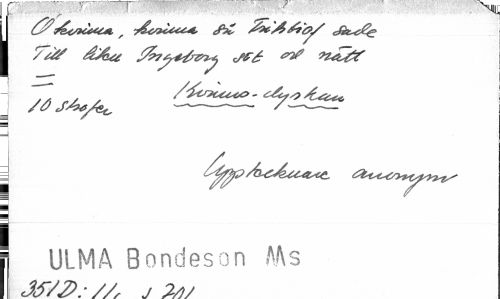 O kvinna, kvinna så Frithiof sade
Till liku Ingeborg set od nätt
=
10 strofer
Kvinno-dyrkan
Upptecknare anonym
ULMA Bondeson Ms
351D: 11, s 201